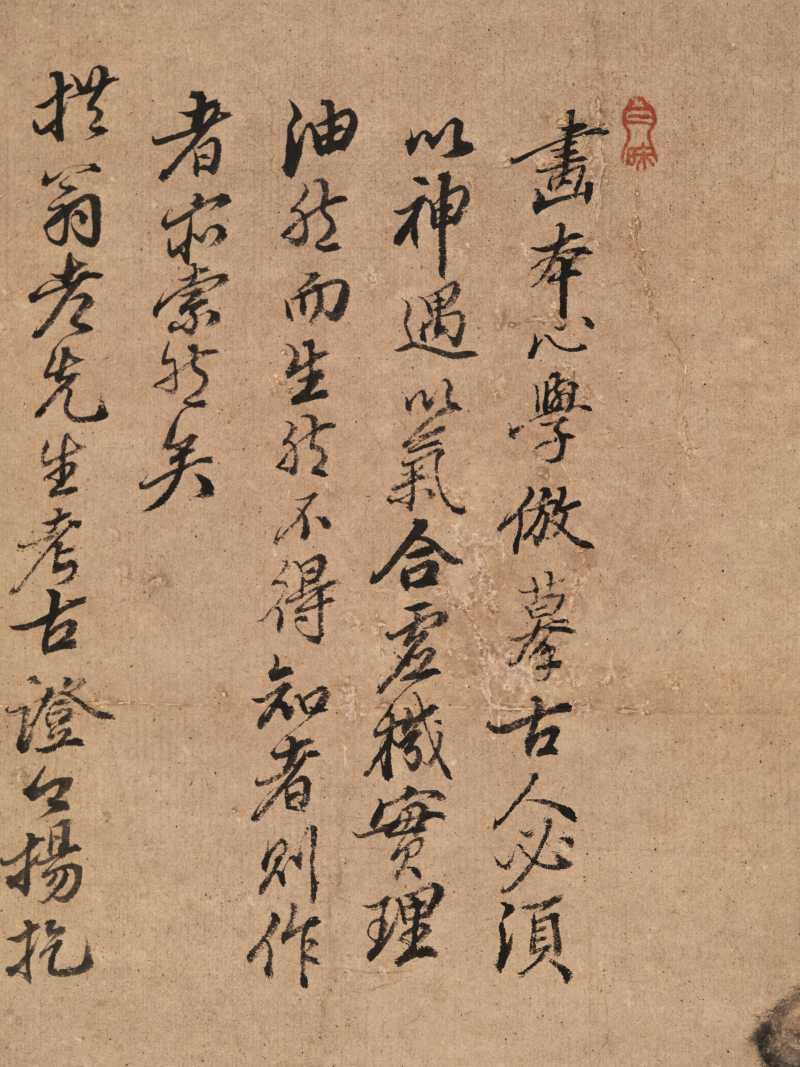 畫本心學倣摹古人必須
以神遇以氣合虛機實理
油然而生然不得知者則作
者亦索然矣
拱翁老先生考古證今揚扢